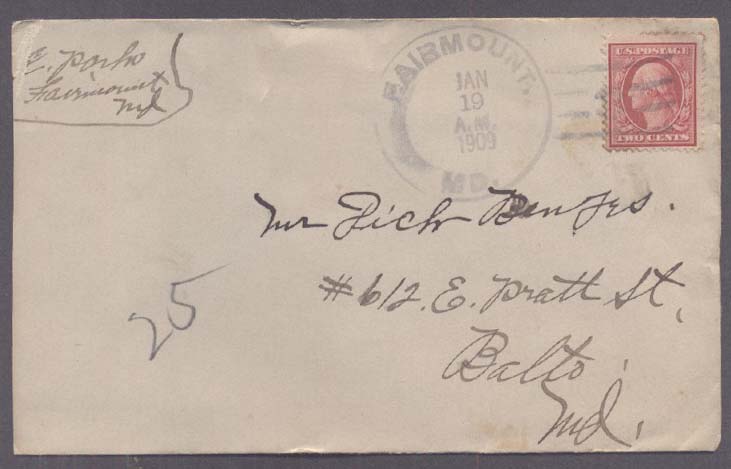 E. Parks
Fairmount
Md
FAIRMOUNT.
JAN
19
A.M.
1909
MD.
U.S. POSTAGE
TWO CENTS
Mr
#612. E. Pratt St,
Balto.
Md.
25